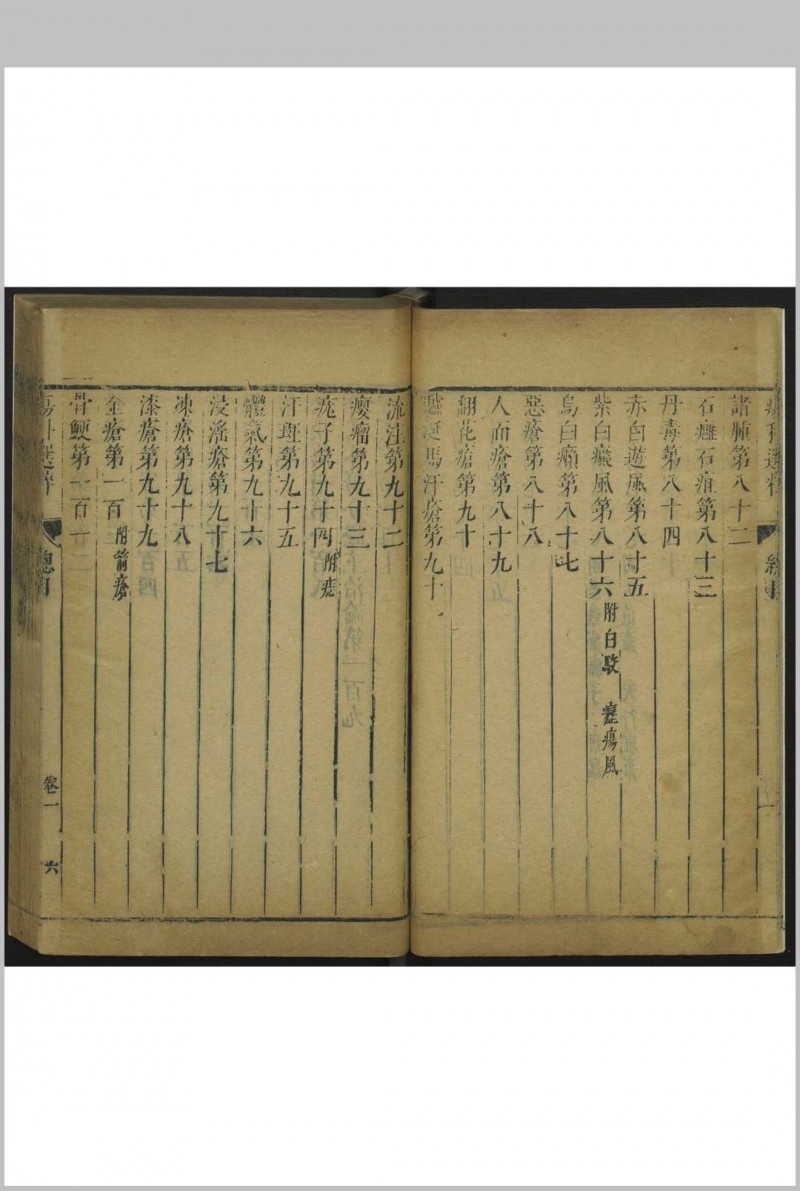 瘍科選粹 總目
諸腫第八十二
石癰石疽第八十三
丹毒第八十四
赤白遊風第八十五
紫白癜風第八十六 附白駁 癧瘍風
烏白癩第八十七
惡瘡第八十八
人面瘡第八十九
翻花瘡第九十
驢涎馬汗瘡第九十一
流注第九十二
癭瘤第九十三
疣子第九十四 附痣
汗斑第九十五
體氣第九十六
浸淫瘡第九十七
凍瘡第九十八
漆瘡第九十九
金瘡第一百 附箭瘡
骨鯁第一百一
瘍科選粹 總目 卷一 六